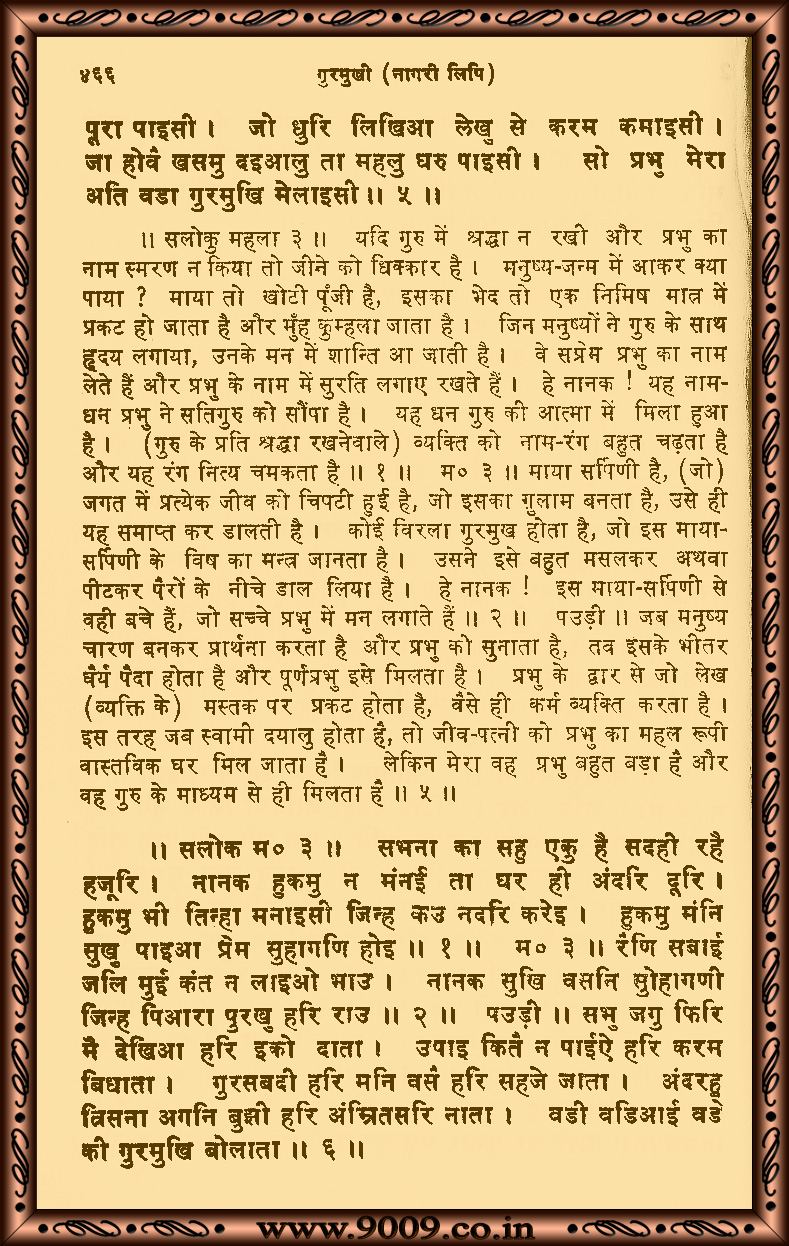 ४६६ गुरमुखी (नागरी लिपि)
पूरा पाइसी । जो धुरि लिखिआ लेखु से करम कमाइसी ।
जा होवै खसमु दइआलु ता महलु घरु पाइसी । सो प्रभु मेरा
अति वडा गुरमुखि मेलाइसी ॥ ५ ॥
॥ सलोकु महला ३ ॥ यदि गुरु में श्रद्धा न रखी और प्रभु का
नाम स्मरण न किया तो जीने को धिक्कार है । मनुष्य-जन्म में आकर क्या
पाया ? माया तो खोटी पूँजी है, इसका भेद तो एक निमिष मात्र में
प्रकट हो जाता है और मुँह कुम्हला जाता है । जिन मनुष्यों ने गुरु के साथ
हृदय लगाया, उनके मन में शान्ति आ जाती है । वे सप्रेम प्रभु का नाम
लेते हैं और प्रभु के नाम में सुरति लगाए रखते हैं । हे नानक ! यह नाम-
धन प्रभु ने सतिगुरु को सौंपा है । यह धन गुरु की आत्मा में मिला हुआ
है । (गुरु के प्रति श्रद्धा रखनेवाले) व्यक्ति को नाम-रंग बहुत चढ़ता है
और यह रंग नित्य चमकता है ॥ १ ॥ म० ३ ॥ माया सर्पिणी है, (जो)
जगत में प्रत्येक जीव को चिपटी हुई है, जो इसका गुलाम बनता है, उसे ही
यह समाप्त कर डालती है । कोई विरला गुरमुख होता है, जो इस माया-
सर्पिणी के विष का मन्त्र जानता है । उसने इसे बहुत मसलकर अथवा
पीटकर पैरों के नीचे डाल लिया है । हे नानक ! इस माया-सर्पिणी से
वही बचे हैं, जो सच्चे प्रभु में मन लगाते हैं ॥ २ ॥ पउड़ी ॥ जब मनुष्य
चारण बनकर प्रार्थना करता है और प्रभु को सुनाता है, तब इसके भीतर
धैर्य पैदा होता है और पूर्णप्रभु इसे मिलता है । प्रभु के द्वार से जो लेख
(व्यक्ति के) मस्तक पर प्रकट होता है, वैसे ही कर्म व्यक्ति करता है ।
इस तरह जब स्वामी दयालु होता है, तो जीव-पत्नी को प्रभु का महल रूपी
वास्तविक घर मिल जाता है । लेकिन मेरा वह प्रभु बहुत बड़ा है और
वह गुरु के माध्यम से ही मिलता है ॥ ५ ॥
॥ सलोक म० ३ ॥ सभना का सहु एकु है सदही रहै
हजूरि । नानक हुकमु न मंनई ता घर ही अंदरि दूरि ।
हुकमु भी तिन्हा मनाइसी जिन्ह कउ नदरि करेइ । हुकमु मंनि
सुखु पाइआ प्रेम सुहागणि होइ ॥ १ ॥ म० ३ ॥ रैणि सबाई
जलि मुई कंत न लाइओ भाउ । नानक सुखि वसनि सुोहागणी
जिन्ह पिआरा पुरखु हरि राउ ॥ २ ॥ पउड़ी ॥ सभु जगु फिरि
मै देखिआ हरि इको दाता । उपाइ कितै न पाईऐ हरि करम
बिधाता । गुरसबदी हरि मनि वसै हरि सहजे जाता । अंदरहु
त्रिसना अगनि बुझी हरि अंम्रितसरि नाता । वडी वडिआई वडे
की गुरमुखि बोलाता ॥ ६ ॥
www.9009.co.in